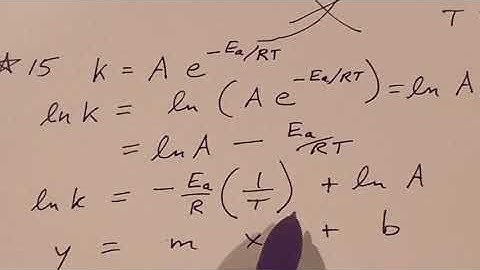 T
☆ 15 k = A e^(-Ea/RT)
ln k = ln (A e^(-Ea/RT)) = ln A
= ln A - Ea/RT
ln k = - Ea/R (1/T) + ln A
y = m x + b